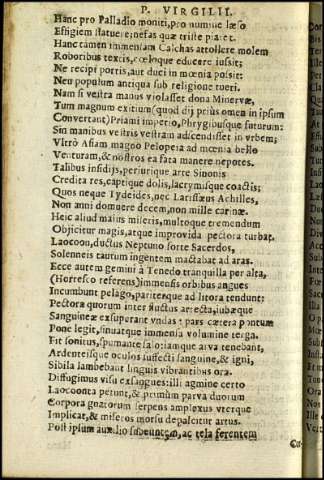 P. VIRGILII
Hanc pro Palladio moniti, pro numine læso
Effigiem statuere; nefas quæ triste piaret.
Hanc tamen immensam Calchas attollere molem
Roboribus textis, cœloque educere iussit;
Ne recipi portis, aut duci in mœnia possit;
Neu populum antiqua sub religione tueri.
Nam si vestra manus violasset dona Minervæ,
Tum magnum exitium (quod dij prius omen in ipsum
Convertant) Priami imperio, Phrygibusque futurum:
Sin manibus vestris vestram adscendisset in vrbem;
Vltrò Asiam magno Pelopeia ad mœnia bello
Venturam, & nostros ea fata manere nepotes.
Talibus insidijs, periurique arte Sinonis
Credita res, captique dolis, lacrymisque coactis;
Quos neque Tydeides, nec Larissæus Achilles,
Non anni domuere decem, non mille carinæ.
Heic aliud maius miseris, multoque tremendum
Obijcitur magis, atque improvida pectora turbat.
Laocoon, ductus Neptuno sorte Sacerdos,
Solenneis taurum ingentem mactabat ad aras.
Ecce autem gemini à Tenedo tranquilla per alta,
(Horresco referens) immensis orbibus angues
Incumbunt pelago, pariterque ad litora tendunt:
Pectora quorum inter fluctus arrecta, iubæque
Sanguineæ exsuperant vndas: pars cætera pontum
Pone legit, sinuatque immensa volumine terga.
Fit sonitus, spumante salo: iamque arva tenebant,
Ardenteisque oculos suffecti sanguine, & igni,
Sibila lambebant linguis vibrantibus ora.
Diffugimus visu exsangues: illi agmine certo
Laocoonta petunt, & primùm parva duorum
Corpora gnatorum serpens amplexus vterque
Implicat, & miseros morsu depascitur artus.
Post ipsum auxilio subeuntem, ac tela ferentem